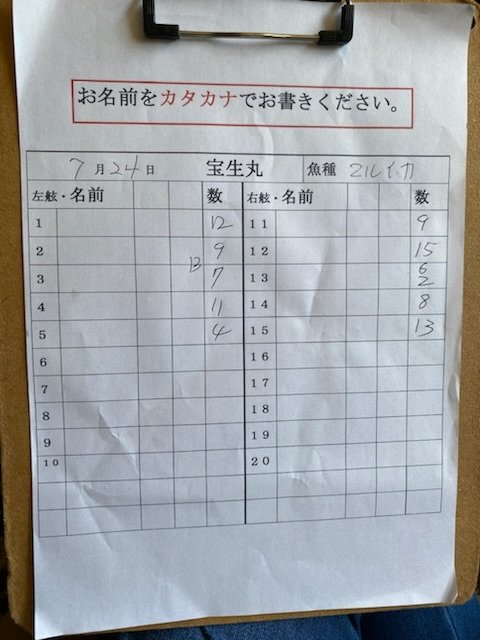 お名前をカタカナでお書きください。
7月24日 宝生丸 魚種 マルイカ
左舷・名前 数 右舷・名前 数
1 12 11 9
2 9 12 15
13
3 7 13 6 2
4 11 14 8
5 4 15 13
6 16
7 17
8 18
9 19
10 20